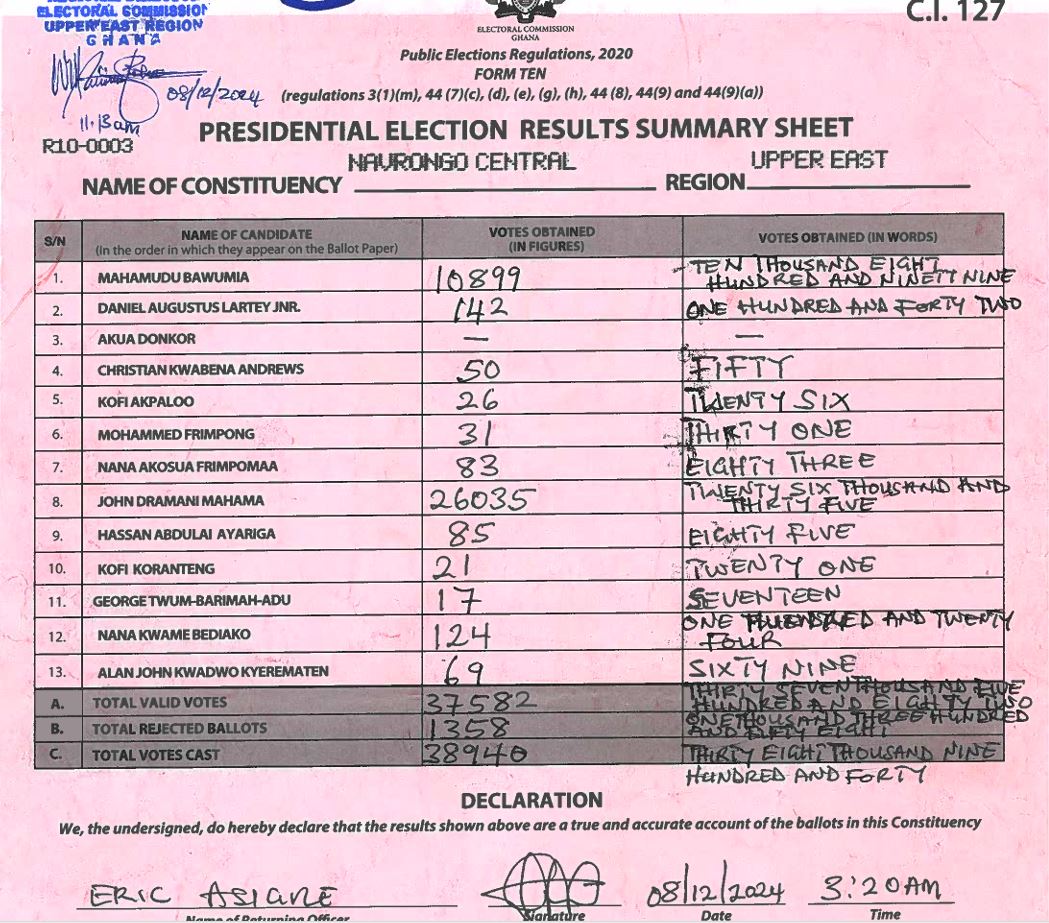 ELECTORAL COMMISSION
UPPER EAST REGION
GHANA
08/12/2024
11:13am
R10-0003
C.I. 127
ELECTORAL COMMISSION
GHANA
Public Elections Regulations, 2020
FORM TEN
(regulations 3(1)(m), 44 (7)(c), (d), (e), (g), (h), 44 (8), 44(9) and 44(9)(a))
PRESIDENTIAL ELECTION RESULTS SUMMARY SHEET
NAME OF CONSTITUENCY NAVRONGO CENTRAL REGION UPPER EAST
S/N NAME OF CANDIDATE (In the order in which they appear on the Ballot Paper) VOTES OBTAINED (IN FIGURES) VOTES OBTAINED (IN WORDS)
1. MAHAMUDU BAWUMIA 10899 TEN THOUSAND EIGHT HUNDRED AND NINETY NINE
2. DANIEL AUGUSTUS LARTEY JNR. 142 ONE HUNDRED AND FORTY TWO
3. AKUA DONKOR — —
4. CHRISTIAN KWABENA ANDREWS 50 FIFTY
5. KOFI AKPALOO 26 TWENTY SIX
6. MOHAMMED FRIMPONG 31 THIRTY ONE
7. NANA AKOSUA FRIMPOMAA 83 EIGHTY THREE
8. JOHN DRAMANI MAHAMA 26035 TWENTY SIX THOUSAND AND THIRTY FIVE
9. HASSAN ABDULAI AYARIGA 85 EIGHTY FIVE
10. KOFI KORANTENG 21 TWENTY ONE
11. GEORGE TWUM-BARIMAH-ADU 17 SEVENTEEN
12. NANA KWAME BEDIAKO 124 ONE HUNDRED AND TWENTY FOUR
13. ALAN JOHN KWADWO KYEREMATEN 69 SIXTY NINE
A. TOTAL VALID VOTES 37582 THIRTY SEVEN THOUSAND FIVE HUNDRED AND EIGHTY TWO
B. TOTAL REJECTED BALLOTS 1358 ONE THOUSAND THREE HUNDRED AND FIFTY EIGHT
C. TOTAL VOTES CAST 38940 THIRTY EIGHT THOUSAND NINE HUNDRED AND FORTY
DECLARATION
We, the undersigned, do hereby declare that the results shown above are a true and accurate account of the ballots in this Constituency
ERIC 08/12/2024 3:20AM
Name of Returning Officer Signature Date Time